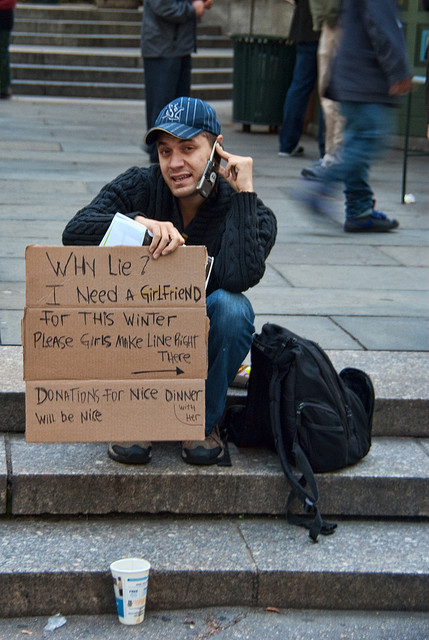 WHY Lie?
I NeeD A GirlFrieND
For THis WiNter
PLEASE Girls MAke LiNe Right
THere
DONAtiONs For Nice DiNNer
with
Her
Will be Nice